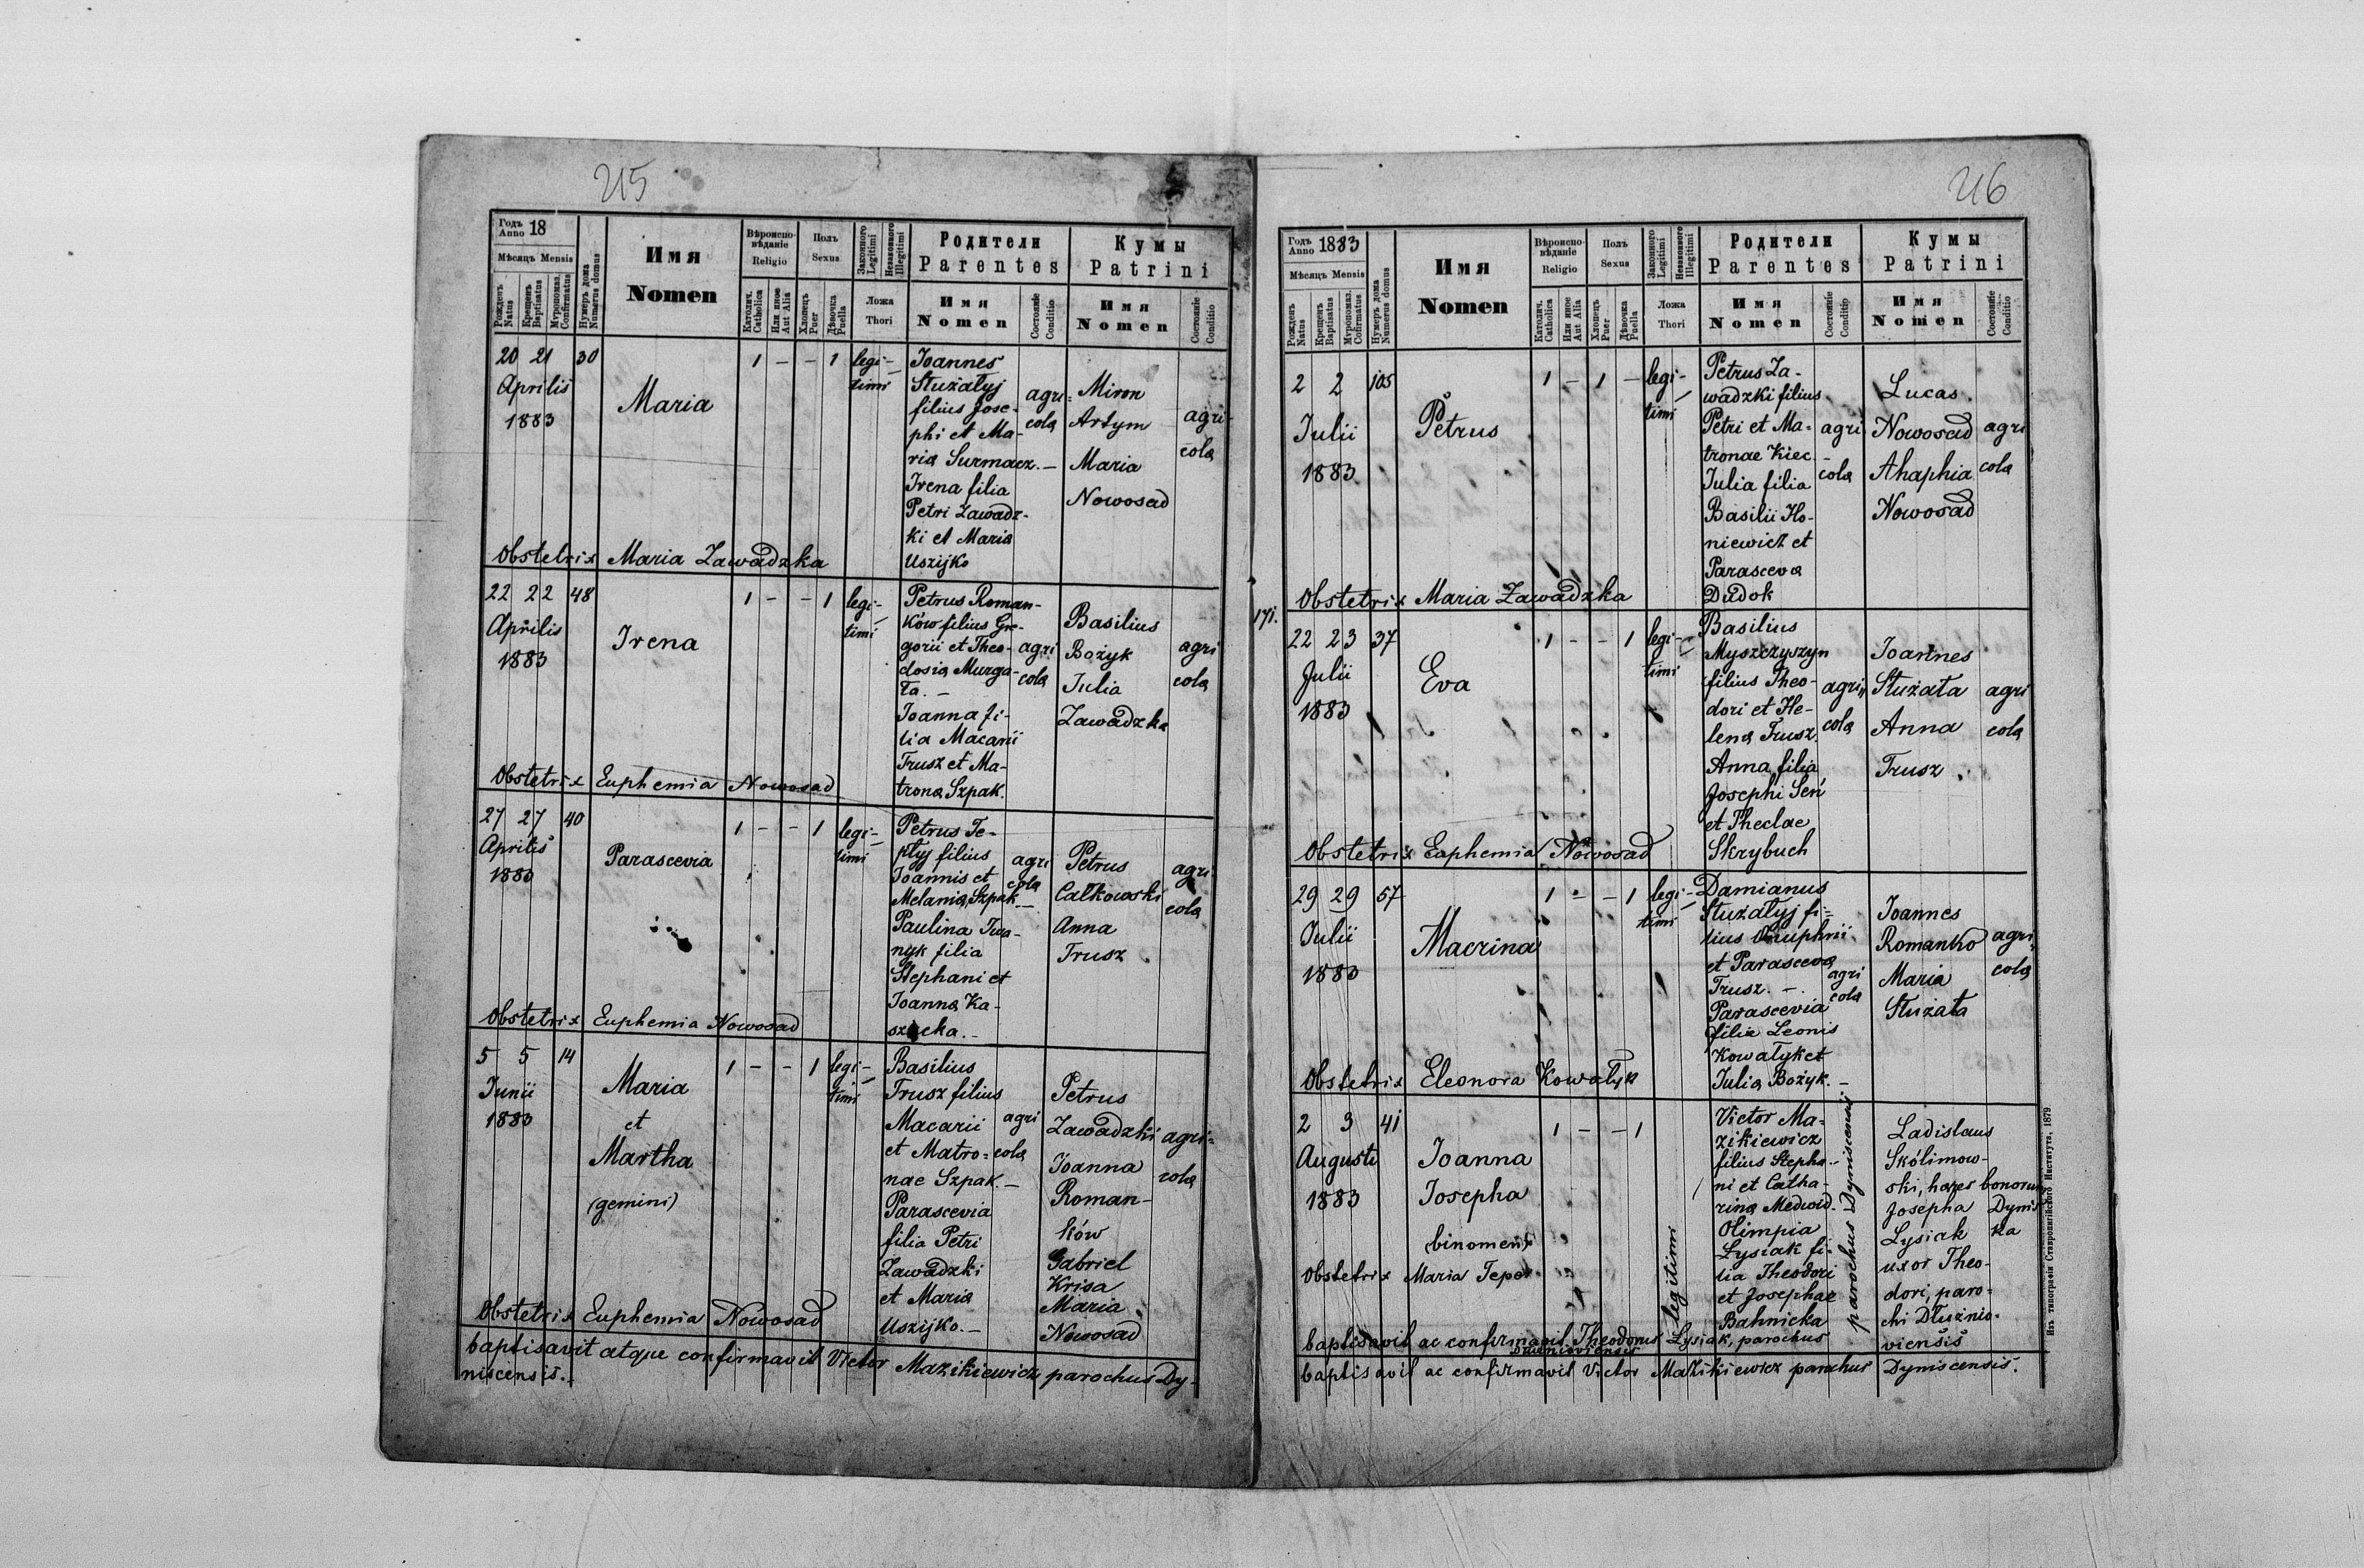 215
Годъ Anno 18
Мѣсяцъ Mensis
Рожденъ Natus
Крещенъ Baptisatus
Мѵропомаз. Confirmatus
Нумеръ дома Numerus domus
Имя
Nomen
Вѣроиспо-
вѣданіе
Religio
Католич. Catholica
Или иное Aut Alia
Полъ
Sexus
Хлопецъ Puer
Дѣвочка Puella
Законного Legitimi
Незаконного Illegitimi
Ложа
Thori
Родители
Parentes
Имя
Nomen
Состояніе Conditio
Кумы
Patrini
Имя
Nomen
Состояніе Conditio
20 21 30
Aprilis
1883
Maria
1 - - 1
legi-
timi
Joannes
Stużałyj
filius Jose-
phi et Ma-
ria Surmacz. -
Irena filia
Petri Zawadz-
ki et Maria
Uszijko
agri=
cola
Miron
Artym
Maria
Nowosad
agri-
cola
Obstetrix Maria Zawadzka
22 22 48
Aprilis
1883
Irena
1 - - 1
legi-
timi
Petrus Roman-
ków filius Gre-
gorii et Theo-
dosia Murga-
ła. -
Joanna fi-
lia Macarii
Trusz et Ma-
trona Szpak.
agri
cola
Basilius
Bożyk
Julia
Zawadzka
agri
cola
Obstetrix Euphemia Nowosad
27 27 40
Aprilis
1883
Parascevia
1 - - 1
legi-
timi
Petrus Te-
płyj filius
Joannis et
Melania Szpak -
Paulina Iwa-
nyk filia
Stephani et
Joanna Ka-
agri
cola
Petrus
Całkowski
Anna
Trusz
agri
cola
Obstetrix Euphemia Nowosad
5 5 14
Junii
1883
Maria
et
Martha
(gemini)
1 - - 1
legi-
timi
Basilius
Trusz filius
Macarii
et Matro=
nae Szpak. -
Parascevia
filia Petri
Zawadzki
et Maria
Uszijko. -
agri
cola
Petrus
Zawadzki
Joanna
Roman-
ków
Gabriel
Krisa
Maria
Nowosad
agri=
cola
Obstetrix Euphemia Nowosad
baptisavit atque confirmavit Victor Mazikiewicz parochus Dy-
niscensis.
216
Годъ Anno 1883
Мѣсяцъ Mensis
Рожденъ Natus
Крещенъ Baptisatus
Мѵропомаз. Confirmatus
Нумеръ дома Numerus domus
Имя
Nomen
Вѣроиспо-
вѣданіе
Religio
Католич. Catholica
Или иное Aut Alia
Полъ
Sexus
Хлопецъ Puer
Дѣвочка Puella
Законного Legitimi
Незаконного Illegitimi
Ложа
Thori
Родители
Parentes
Имя
Nomen
Состояніе Conditio
Кумы
Patrini
Имя
Nomen
Состояніе Conditio
2 2 105
Julii
1883
Petrus
1 - 1 -
legi-
timi
Petrus Za-
wadzki filius
Petri et Ma=
tronae Kiec. -
Julia filia
Basilii Ho-
niewicz et
Parasceva
Dudok
agri
cola
Lucas
Nowosad
Ahaphia
Nowosad
agri
cola
Obstetrix Maria Zawadzka
22 23 37
Julii
1883
Eva
1 - - 1
legi-
timi
Basilius
Myszczyszyn
filius Theo-
dori et He-
lena Trusz.
Anna filia
Josephi Seń
et Theclae
Skrybuch
agri
cola
Joannes
Stużała
Anna
Trusz
agri
cola
Obstetrix Euphemia Nowosad
29 29 57
Julii
1883
Macrina
1 - - 1
legi-
timi
Damianus
Stużałyj fi=
lius Onuphrii
et Parasceva
Trusz. -
Parascevia
filia Leonis
Kowałyk et
Julia Bożyk. -
agri
cola
Joannes
Romanko
Maria
Stużała
agri
cola
Obstetrix Eleonora Kowałyk
2 3 41
Augusti
1883
Joanna
Josepha
(binomen)
1 - - 1
legitimi
Victor Ma-
zikiewicz
filius Stepha-
ni et Catha-
rina Medwid.
Olimpia
Łysiak fi-
lia Theodori
et Josephae
Bahnicka
parochus Dyniscensis
Ladislaus
Skólimow-
ski, haeres bonorum
Josepha Dynis
Lysiak ka
uxor Theo-
dori, paro=
chi Dłużnio-
viensis
Obstetrix Maria Teper
baptisavit ac confirmavit Theodorus Lysiak, parochus
Dłużnioviensis
baptisavit ac confirmavit Victor Mazikiewicz parochus Dyniscensis.
Изъ типографіи Ставропигійского Института, 1879